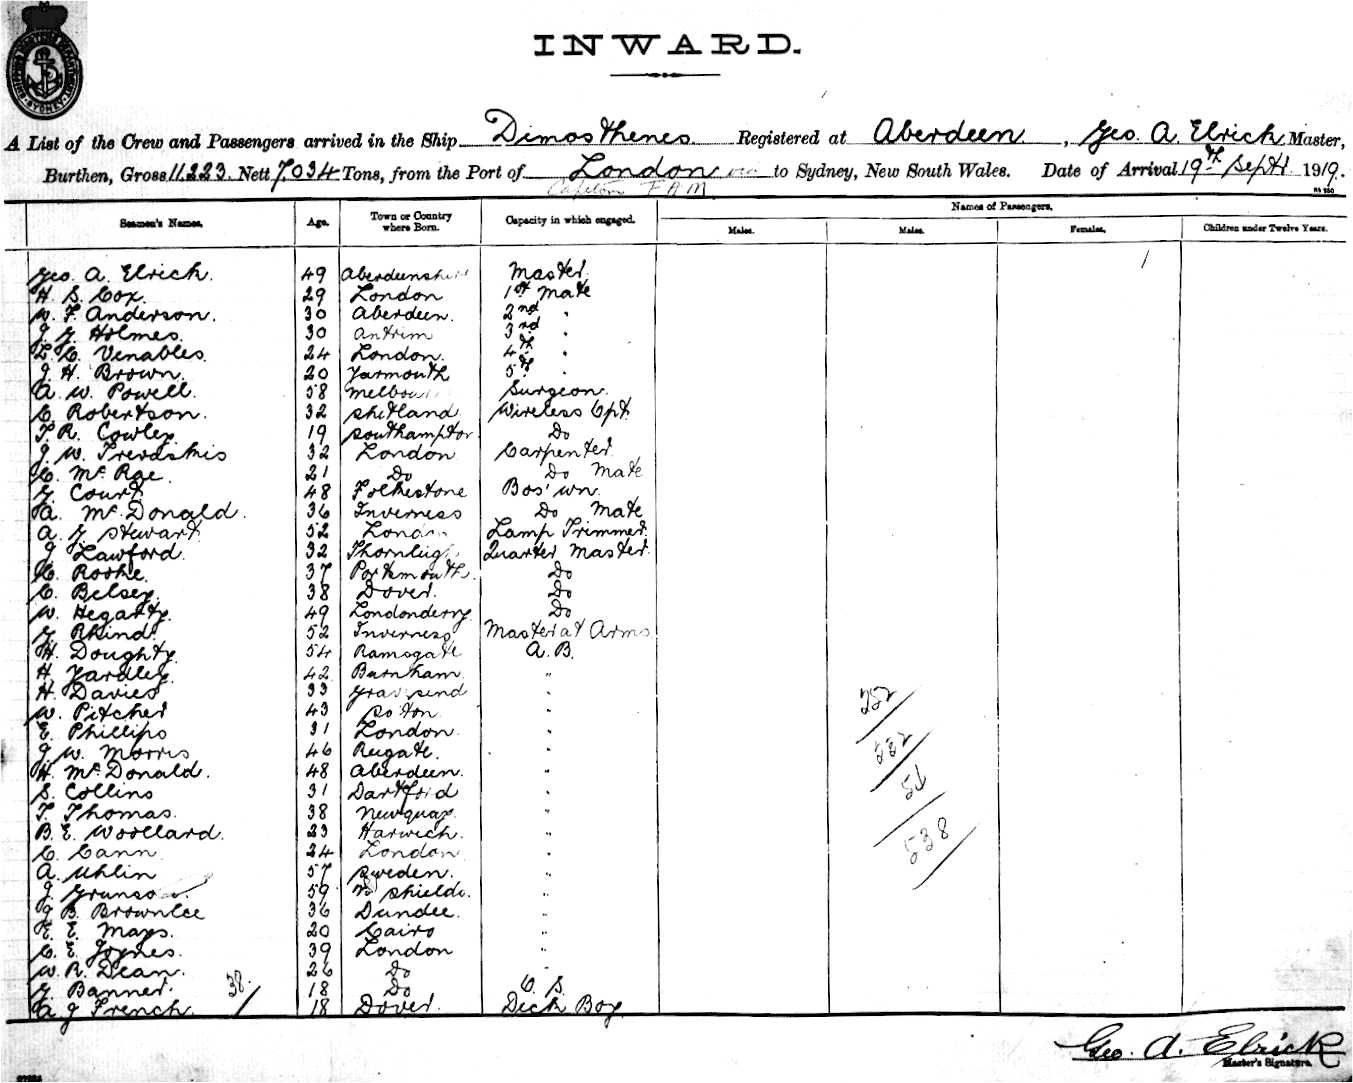 SHIPPING MASTER'S DEPARTMENT SYDNEY
INWARD.
A List of the Crew and Passengers arrived in the Ship Dimosthenes Registered at Aberdeen, Geo. A. Elrick Master,
Burthen, Gross 11223 Nett 7034 Tons, from the Port of London via to Sydney, New South Wales. Date of Arrival 19th Sept 1919.
Seamen's Names. Age. Town or Country where Born. Capacity in which engaged. Names of Passengers.
Males. Males. Females. Children under Twelve Years.
Geo. A. Elrick. 49 Aberdeenshire Master.
H. S. Cox. 29 London 1st Mate
W. F. Anderson. 30 Aberdeen. 2nd "
J. G. Holmes. 30 Antrim 3rd "
L. C. Venables. 24 London. 4th "
J. H. Brown. 20 Yarmouth 5th "
A. W. Powell. 58 Melbou Surgeon.
C. Robertson. 32 Shetland Wireless Opt.
T. R. Cowley. 19 Southampton Do
J. W. Trevaskis 32 London Carpenter.
C. McRae. 21 Do Do Mate
G. Court 48 Folkestone Bos'wn.
A. McDonald. 36 Inverness Do Mate
A. G. Stewart 52 London Lamp Trimmer.
J. Lawford. 32 Thornleigh Quarter Master.
C. Roohe. 37 Portsmouth. Do
C. Belsey. 38 Dover. Do
W. Hegarty. 49 Londonderry Do
G. Rhind. 52 Inverness Master at Arms
H. Doughty. 54 Ramsgate A. B.
H. Yardley. 42 Burnham "
H. Davies 33 Gravesend "
W. Pitcher 43 So'ton "
E. Phillips 31 London. "
J. W. Morris 46 Reigate. "
H. McDonald. 48 Aberdeen. "
S. Collins 31 Dartford "
T. Thomas. 38 Newquay. "
B. E. Woollard. 23 Harwich. "
C. Cann 24 London "
A. Uhlin 57 Sweden. "
J. 59 No Shields. "
J. B. Brownlee 36 Dundee. "
E. E. Mays. 20 Cairo "
C. E. Joynes. 39 London "
W. R. Dean. 26 Do "
G. Banner. 18 Do O. S.
A J French. 18 Dover. Deck Boy.
38
252
232
54
538
Geo. A. Elrick
Master's Signature.